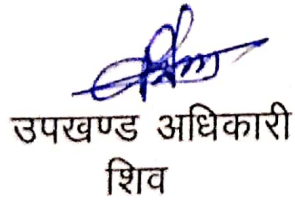 उपखण्ड अधिकारी
शिव